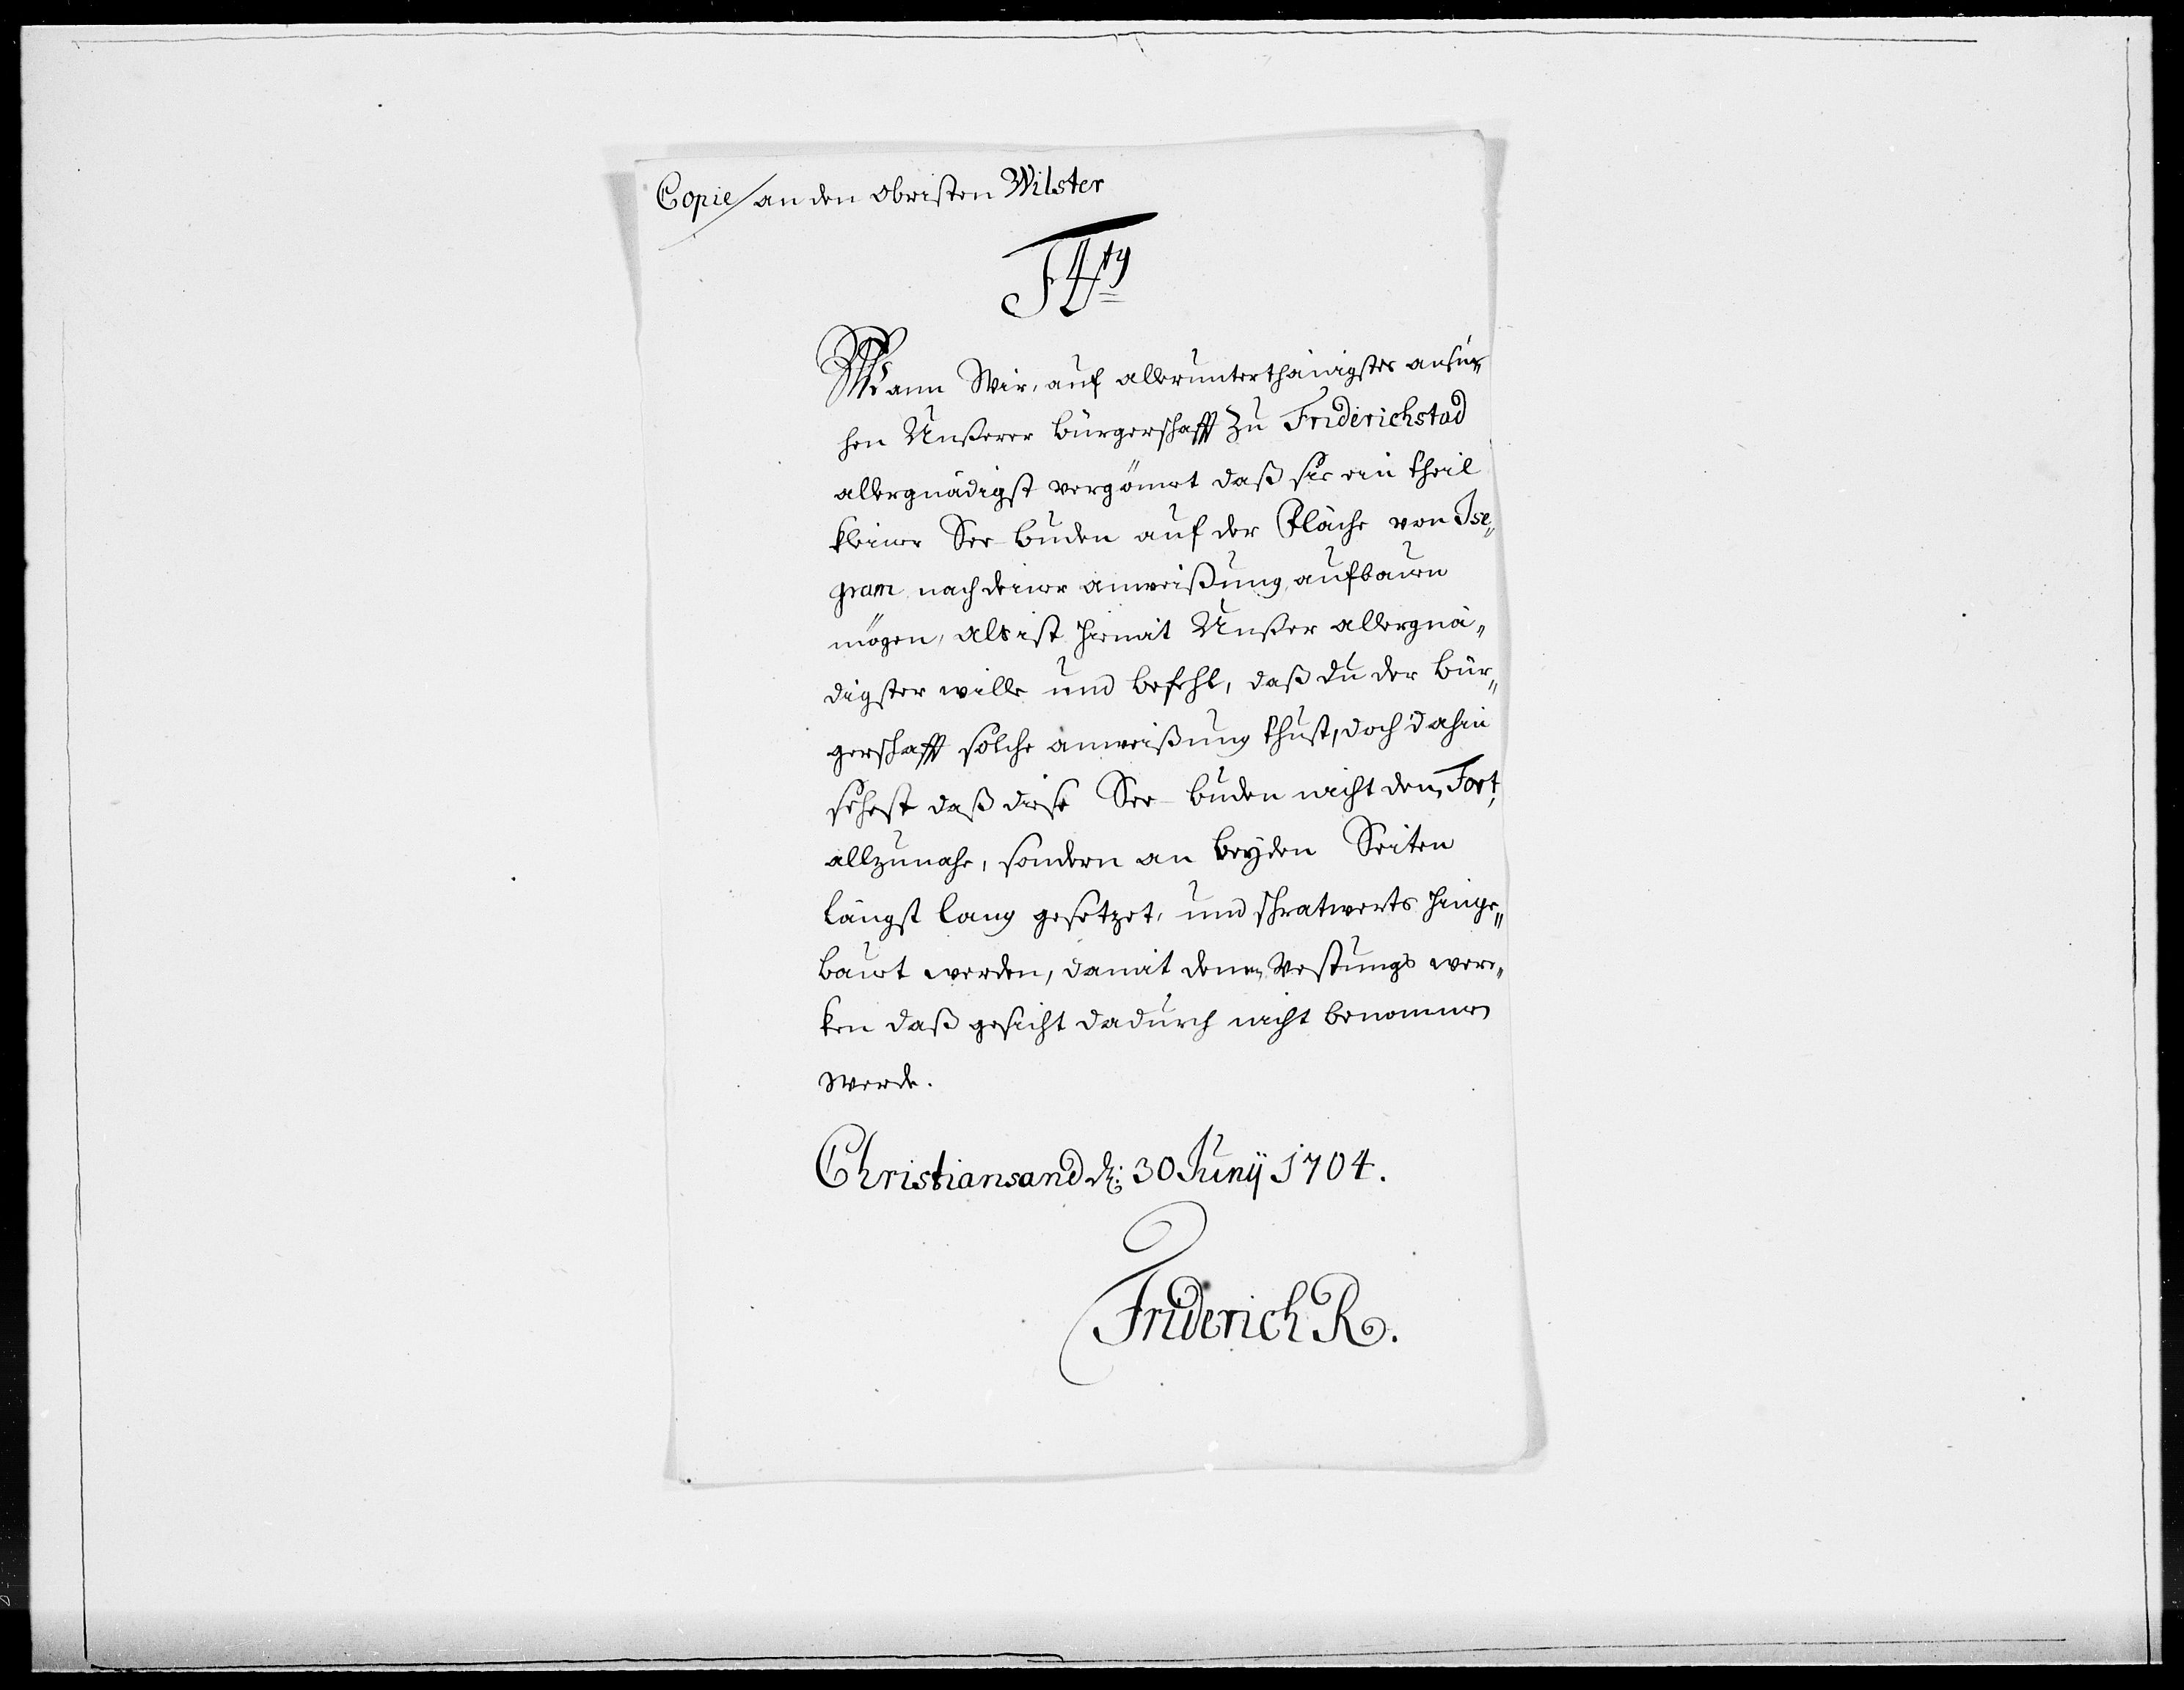 Copie / an den Obristen Wilster
F4ty
Wann Wir, auf allerunterthänigstes ansu¬
chen Unßerer bürgerschafft zu Friderichstad
allergnädigst vergönnet daß sie ein theil
kleiner See-buden auf der Fläche von Ise„
gram nach deiner anweißung, aufbauen
mögen, als ist hiemit Unßer allergnä„
digster wille und befehl, daß du der bür„
gerschafft solche anweißung thust, doch dahin
sehest daß diese See-buden nicht dem Fort,
allzunahe, sondern an beyden Seiten
längst lang gesetzet, und hinge„
bauet werden, damit denen Vestungs wer„
ken daß gesicht dadurch nicht benommen
werde.
Christiansand d: 30 Junÿ 1704.
Friderich R.